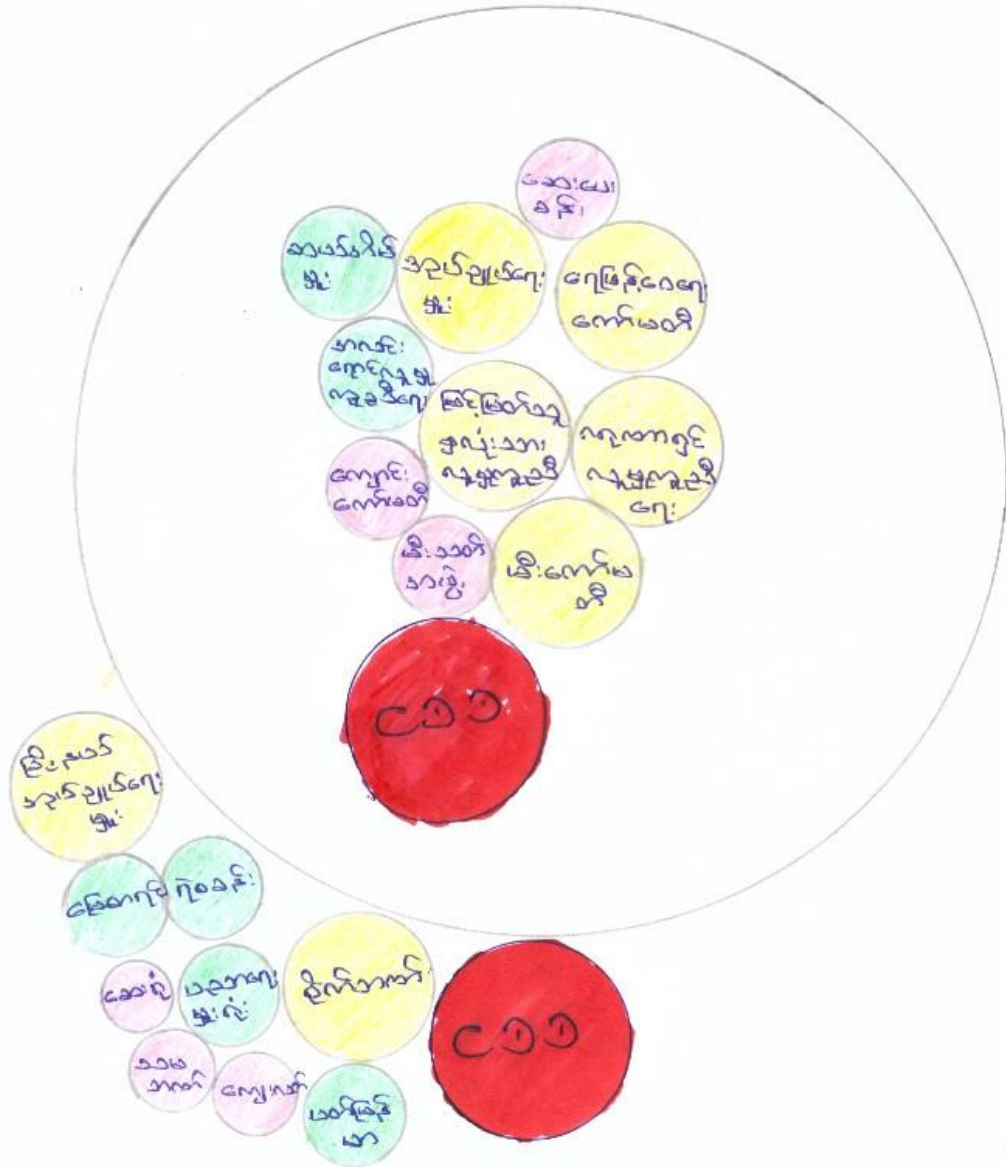 ဆေးပေး
ခန်း
ရာအိမ်
မှူး
အုပ်ချုပ်ရေး
မှူး
ရေဖြန့်ဝေရေး
ကော်မတီ
အလင်း
ရောင်လူမှု
ကူညီရေး
မြင့်မြတ်သူ
နှလုံးသား
လူမှုကူညီ
ကရုဏာရှင်
လူမှုကူညီ
ရေး
ကျောင်း
ကော်မတီ
မီးသတ်
အဖွဲ့
မီးကော်မ
တီ
CDD
မြို့နယ်
အုပ်ချုပ်ရေး
မှူး
မြေစာရင်း
ရဲစခန်း
ဆေးရုံ
ပညာရေး
မှူးရုံး
စိုက်ဘဏ်
CDD
သမ
ဘဏ်
ကျေးလက်
ပတ်မြန်
မာ